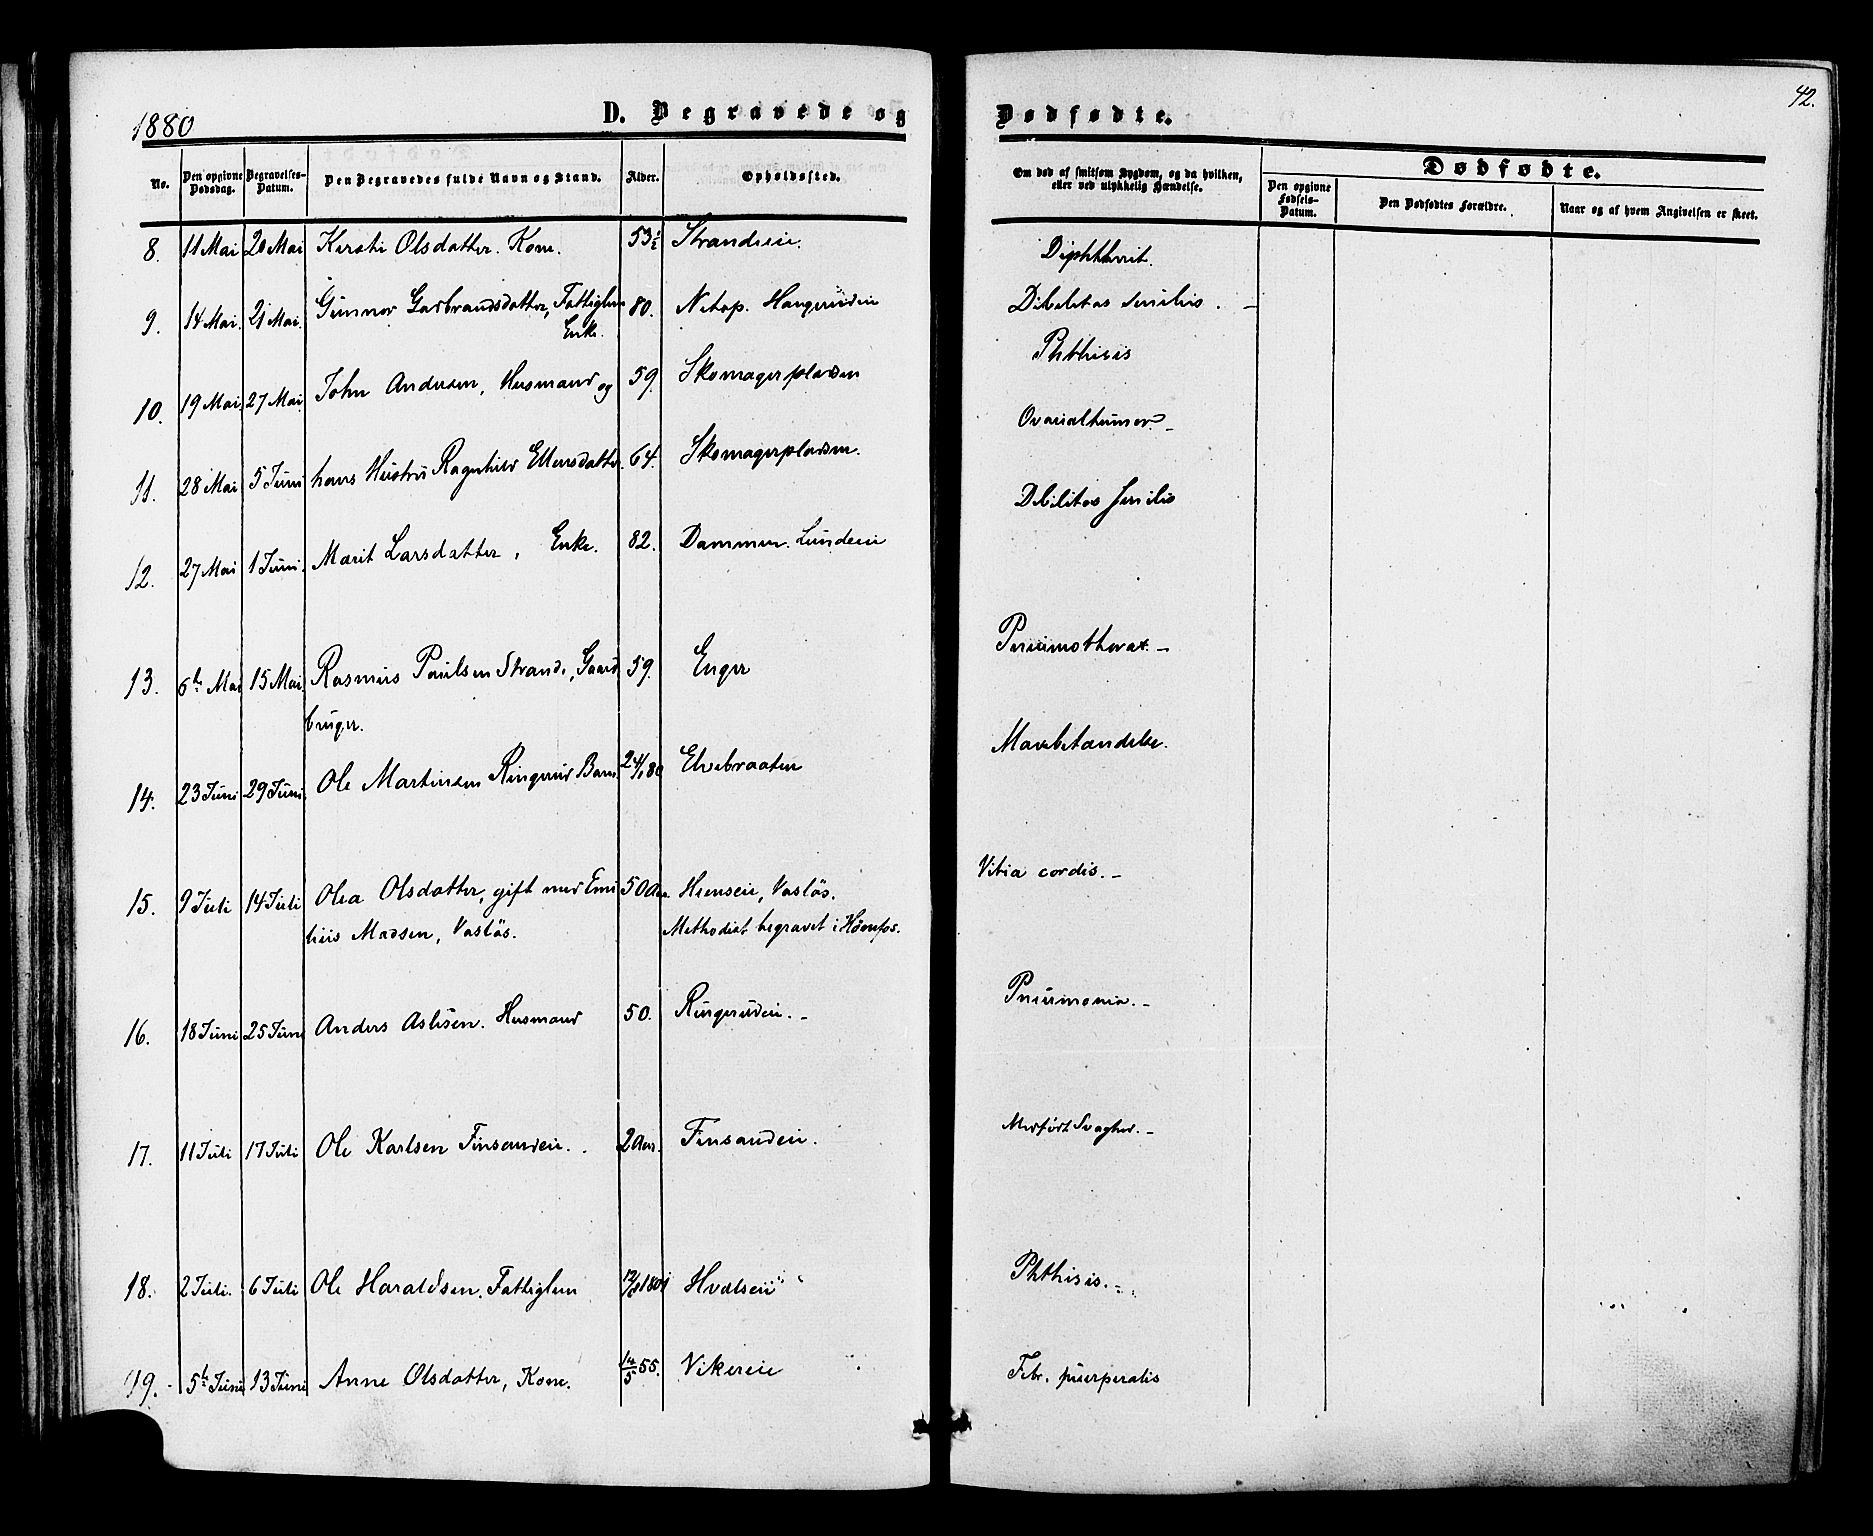 1880 D. Begravede og Dødfødte. 42.
No. Den opgivne Dødsdag. Begravelses-Datum. Den Begravedes fulde Navn og Stand. Alder. Opholdssted. Om død af smitsom Sygdom, og da hvilken, eller ved ulykkelig Hændelse. Dødfødte.
Den opgivne Fødsels-Datum. Den Dødfødtes Forældre. Naar og af hvem Angivelsen er skeet.
8. 11 Mai 20 Mai Kersti Olsdatter. Kone. 53½ Strandeie. Diphtherit.
9. 14 Mai. 21 Mai. Gunnor Gulbrandsdatter, Fattiglem 80. Netop. Haugerudeie Debilitas senilis. –
Enke.
10. 19 Mai 27 Mai John Andersen, Husmand og 59. Skomagerpladsen Phthisis
11. 28 Mai 5 Juni hans Hustru Ragnhild Ellensdatter. 64. Skomagerpladsen. Ovarialtumor. –
12. 27 Mai 1 Juni. Marit Larsdatter, Enke. 82. Dammen. Lundeeie Debilitas senilis
13. 6te Mai 15 Mai Rasmus Paulsen Strande, Gaard 59. Enger Pneumothorax. –
bruger.
14. 23 Juni 29 Juni. Ole Martinsen Ringerud Barn 24/1 80 Elvebraaten Mavebetændelse.
15. 9 Juli 14 Juli Olea Olsdatter, gift med Emi 50 Aar Heenseie, Vasløs. Vitia cordis. –
lius Madsen, Vasløs. Methodist begravet i Hönefos.
16. 18 Juni 25 Juni Anders Aslesen. Husmand 50. Ringerudeie. – Pneumonia. –
17. 11 Juli 17 Juli Ole Karlsen Finsandeie. 2 Aar. Finsandeie. Medfødt Svaghed. –
18. 2 Juli. 6 Juli Ole Haraldsen. Fattiglem 1801 Hvalseie Phthisis. –
19. 5te Juni 13 Juni Anne Olsdatter, Kone. 14/5 55. Vikereie Febr. puerperalis